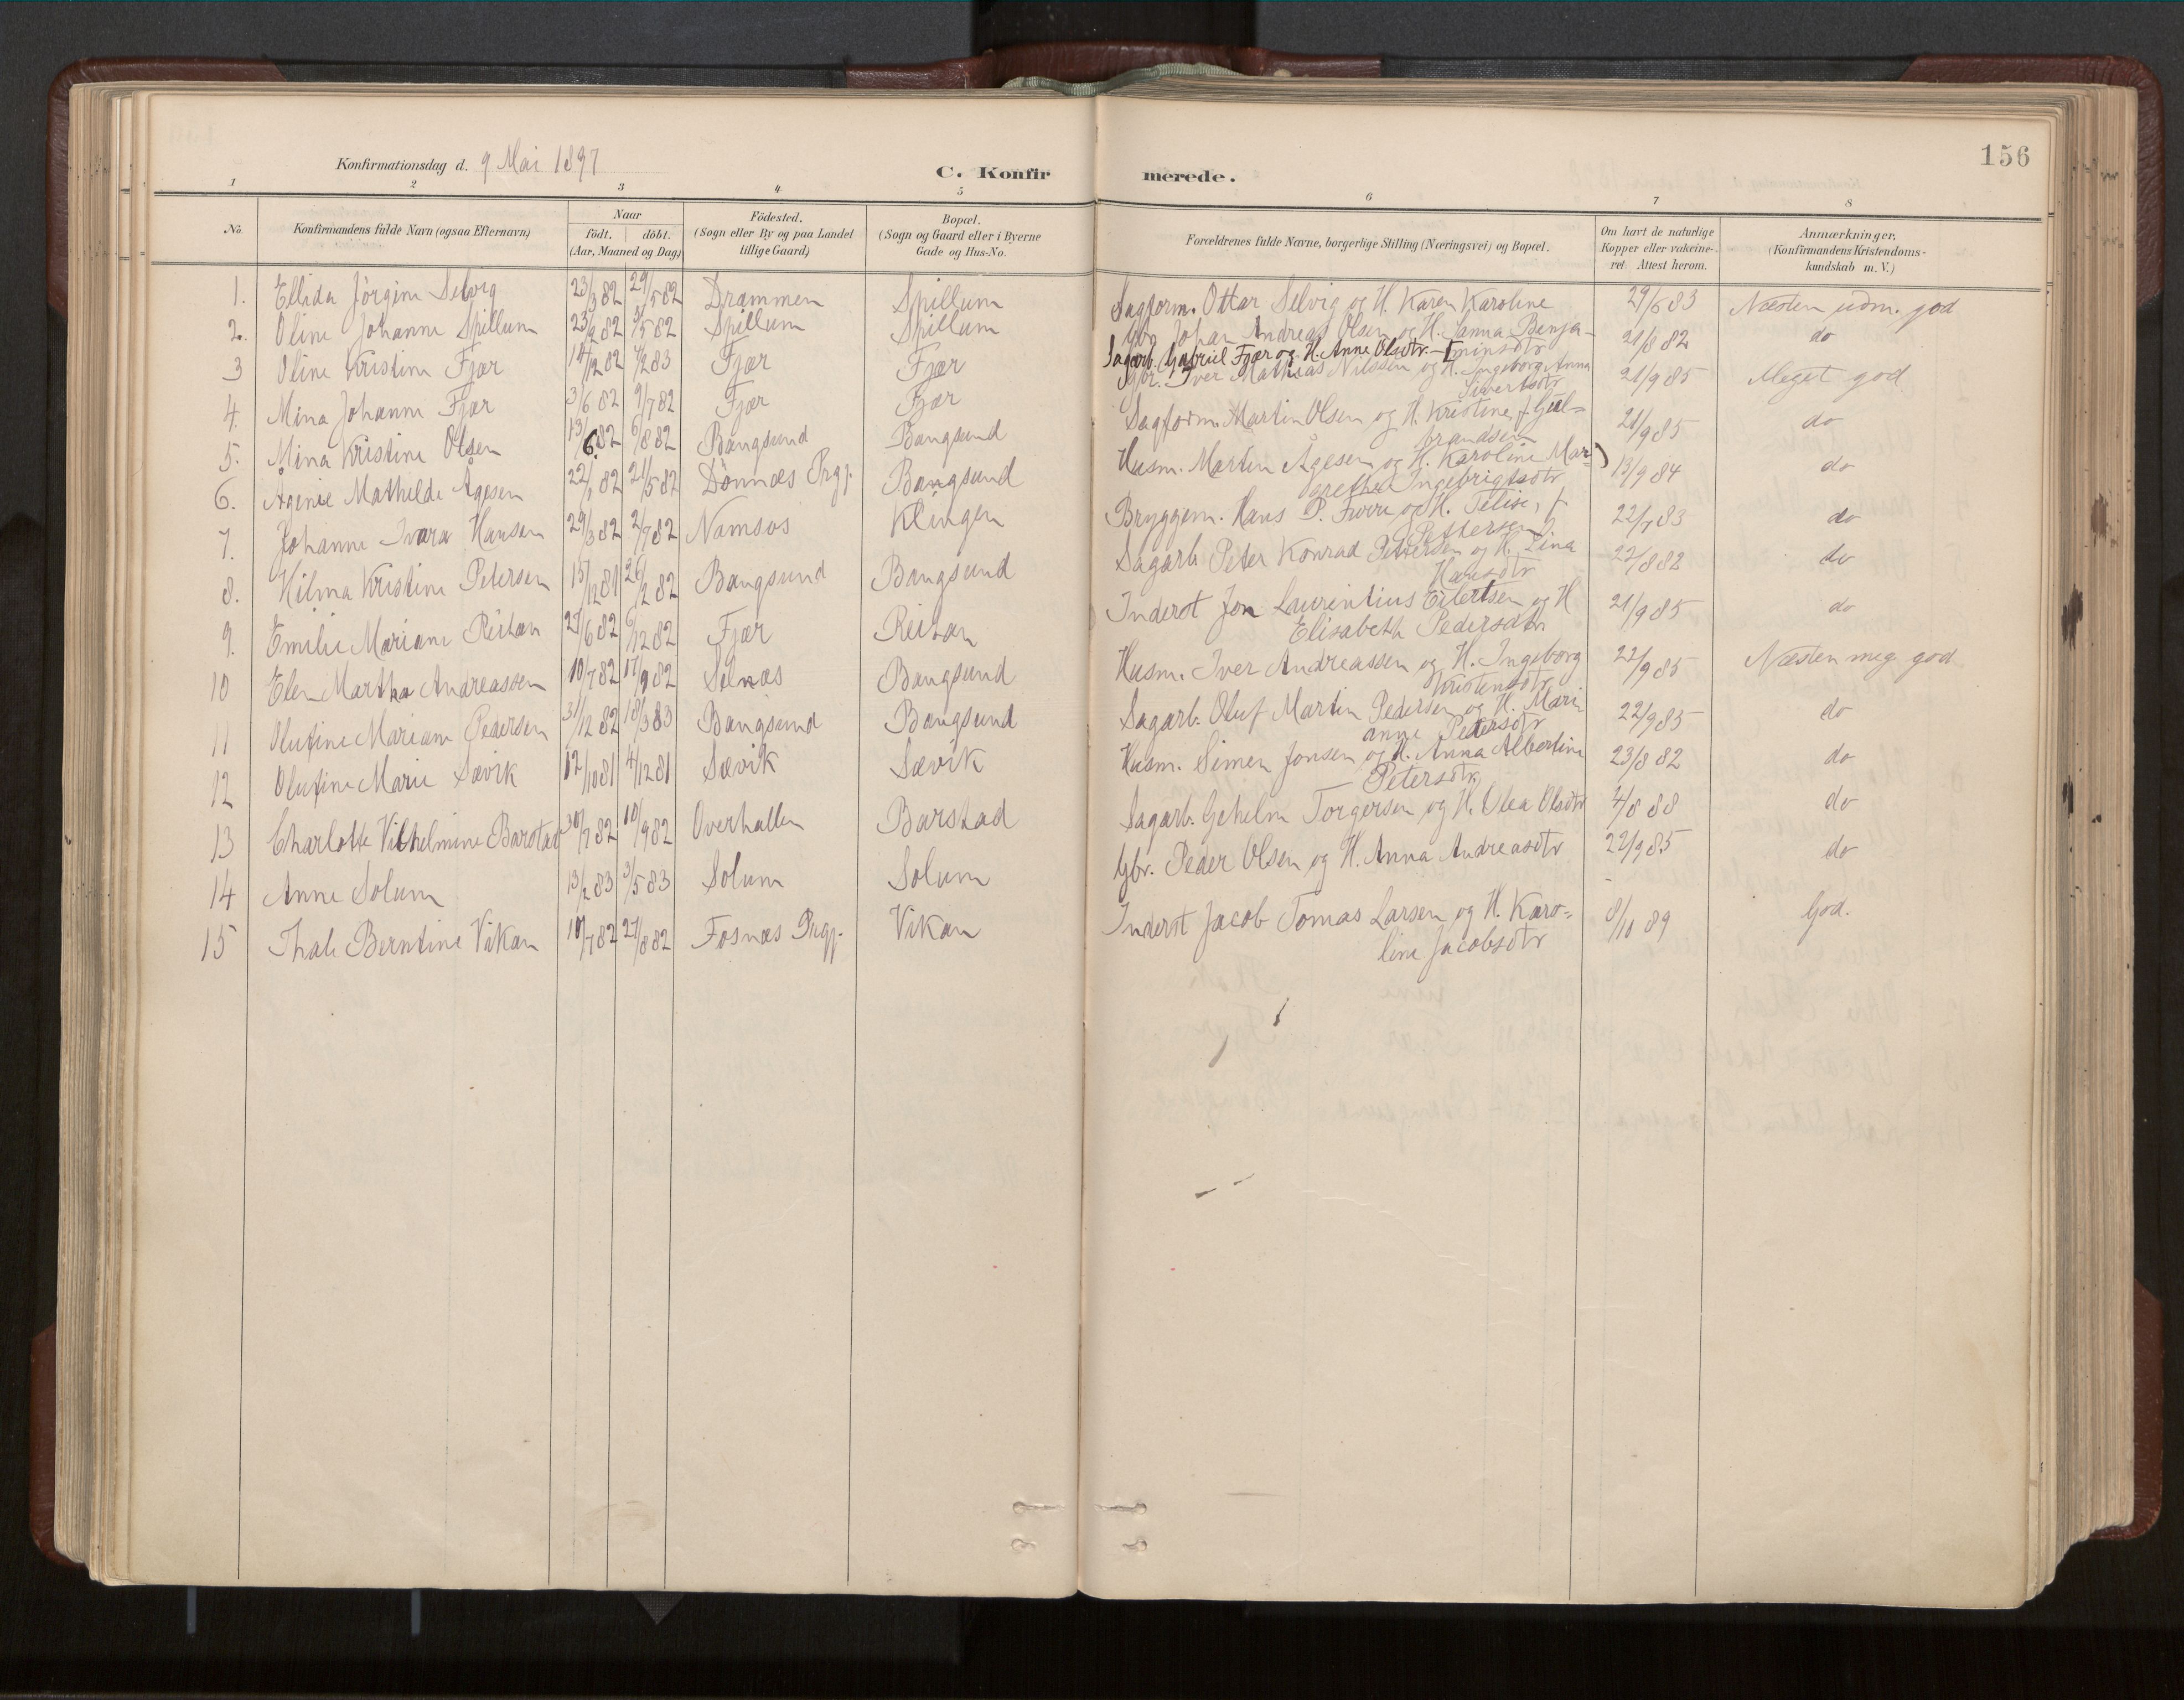 156
Konfirmationsdag d. 9 Mai 1897
C. Konfirmerede.
1 2 3 4 5 6 7 8
No. Konfirmandens fulde Navn (ogsaa Efternavn) Naar født. døbt. (Aar, Maaned og Dag) Födested. (Sogn eller By og paa Landet tillige Gaard) Bopæl. (Sogn og Gaard eller i Byerne Gade og Hus-No. Forældrenes fulde Navne, borgerlige Stilling (Næringsvei) og Bopæl. Om havt de naturlige Kopper eller vakcineret Attest herom. Anmærkninger, (Konfirmandens Kristendomskundskab m. V.)
1. Ellida Jörgine Selvig 23/3 82 29/5 82 Drammen Spillum Sagform. Ottar Selvig og H. Karen Karoline 29/6 83 Næsten udm. god
2. Oline Johanne Spillum 23/2 82 3/5 82 Spillum Spillum Gbr. Johan Andreas Olsen og H. Janna Benja-minsdtr 21/8 82 do
3 Oline Kristine Fjær 14/12 82 4/2 83 Fjær Fjær Sagarb. Gabriel Fjær og H. Anne Olsdtr.
4. Mina Johanne Fjær 3/6 82 9/7 82 Fjær Fjær Gbr. Iver Mathias Nilssen og H. Ingeborg Anna Sivertsdtr 21/9 85 Meget god
5. Mina Kristine Olsen 13/6 82 6/8 82 Bangsund Bangsund Sagform. Martin Olsen og H. Kristine f. Gul=brandsen 21/9 85 do
6. Ågenie Mathilde Ågesen 22/1 82 21/5 82 Dönnæs Prgj. Bangsund Husm. Martin Ågesen og H. Karoline Mar=grethe Ingebrigtsdtr 13/9 84 do
7. Johanne Ivara Hansen 29/3 82 2/7 82 Namsos Klingen Bryggem. Hans P. og H. Telise, f. Pettersen 22/7 83 do
8. Hilma Kristine Petersen 15/12 81 26/2 82 Bangsund Bangsund Sagarb. Peter Konrad Pettersen og H. Lina Hansdtr 22/8 82 do
9. Emilie Mariane Reitan 27/6 82 6/12 82 Fjær Reitan Inderst Jon Laurentius Eilertsen og H Elisabeth Pedersdtr. 21/9 85 do
10 Elen Martha Andreassen 10/7 82 17/9 82 Selnæs Bangsund Husm. Iver Andreassen og H. Ingeborg Kristensdtr 22/9 85 Næsten meg. god
11 Olufine Mariane Pedersen 31/12 82 18/3 83 Bangsund Bangsund Sagarb. Oluf Martin Pedersen og H. Mari-anne Petersdtr 22/9 85 do
12 Olufine Marie Sævik 12/10 81 4/12 81 Sævik Sævik Husm. Simen Jonsen og H. Anna Albertine Petersdtr 23/8 82 do
13 Charlotte Vilhelmine Barstad 30/7 82 10/9 82 Overhallen Barstad Sagarb. Gehelm Torgersen og H. Olea Olsdtr 4/8 88 do
14 Anne Solum 13/2 83 3/5 83 Solum Solum Gbr. Peder Olsen og H. Anna Andreasdtr 22/9 85 do
15 Thale Berntine Vikan 10/7 82 27/8 82 Fosnæs Prgj. Vikan Inderst Jacob Tomas Larsen og H. Karo=line Jacobsdtr 8/10 89 God.